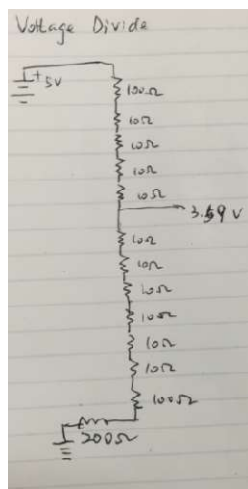 Voltage Divide
+ 5V
100Ω
10Ω
10Ω
10Ω
10Ω
3.59 V
10Ω
10Ω
10Ω
10Ω
10Ω
10Ω
100Ω
200Ω